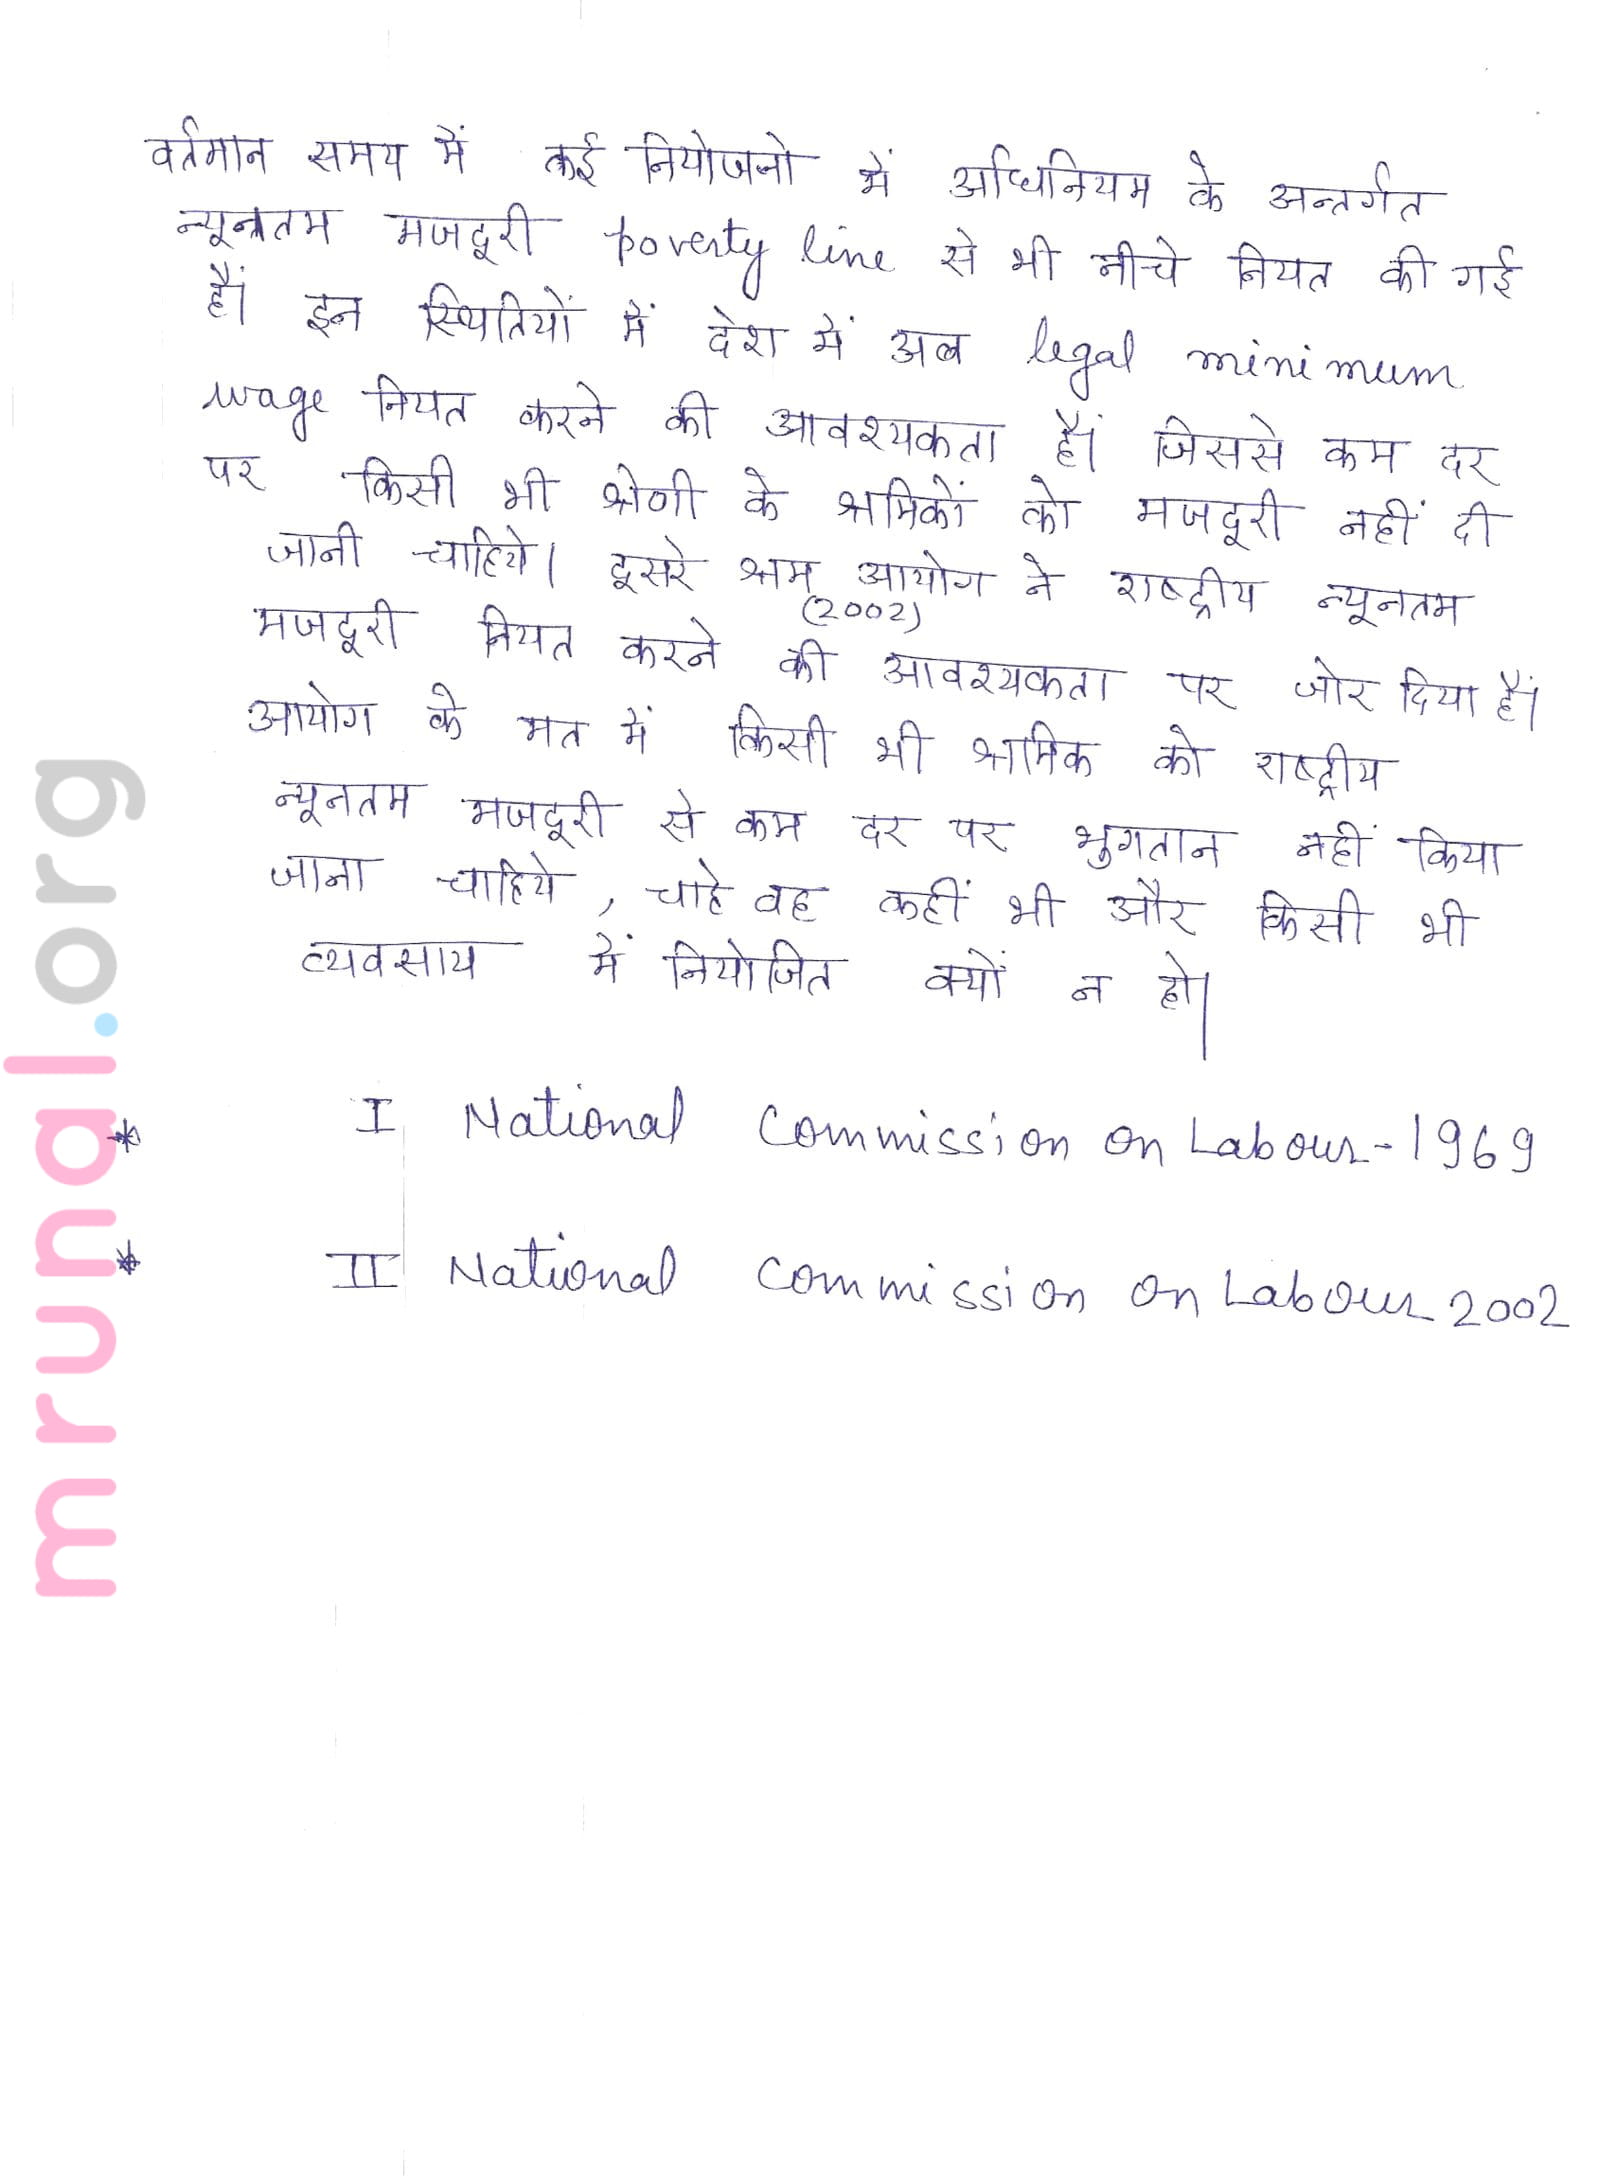 वर्तमान समय में कई नियोजनो में अधिनियम के अन्तर्गत
न्यूनतम मजदूरी poverty line से भी नीचे नियत की गई
हैं। इन स्थितियों में देश में अब legal minimum
wage नियत करने की आवश्यकता हैं। जिससे कम दर
पर किसी भी श्रेणी के श्रमिकों को मजदूरी नहीं दी
जानी चाहिये। दूसरे श्रम आयोग ने राष्ट्रीय न्यूनतम
(2002)
मजदूरी नियत करने की आवश्यकता पर जोर दिया हैं।
आयोग के मत में किसी भी श्रमिक को राष्ट्रीय
न्यूनतम मजदूरी से कम दर पर भुगतान नहीं किया
जाना चाहिये, चाहे वह कहीं भी और किसी भी
व्यवसाय में नियोजित क्यों न हो।
* I National Commission on Labour - 1969
* II National Commission on Labour 2002
mrunal.org